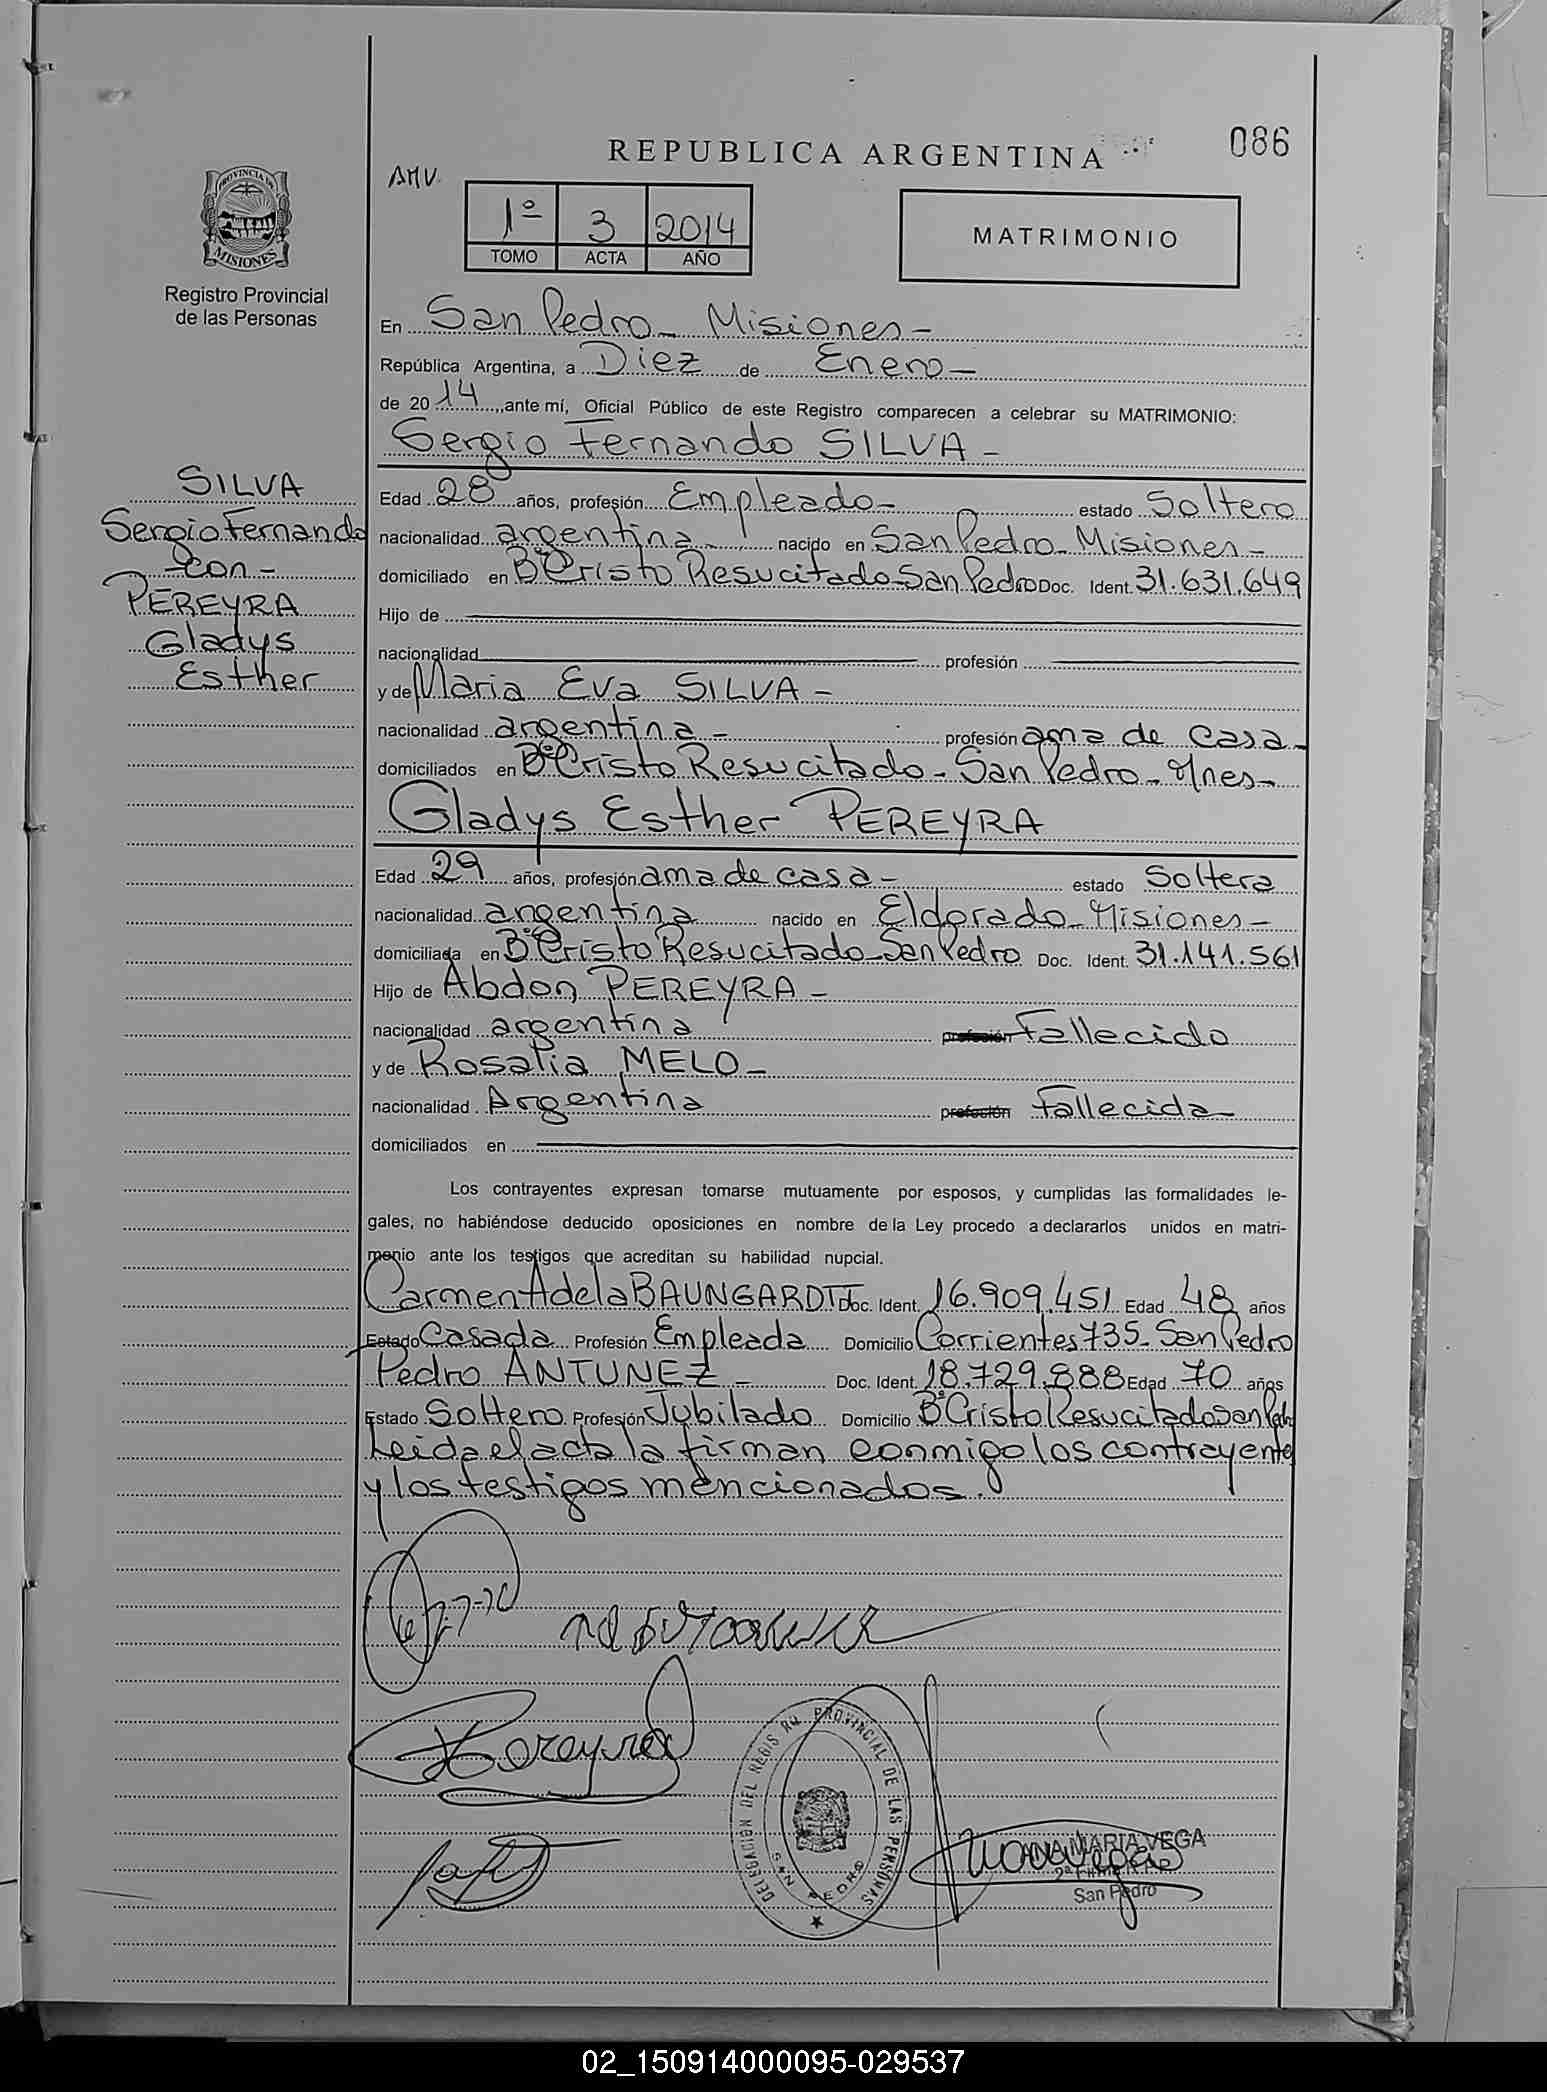 REPUBLICA ARGENTINA
086
AMV.
PROVINCIA DE
MISIONES
Registro Provincial
de las Personas
1º 3 2014
TOMO ACTA AÑO
MATRIMONIO
En San Pedro - Misiones -
República Argentina, a Diez de Enero -
de 2014, ante mí, Oficial Público de este Registro comparecen a celebrar su MATRIMONIO:
Sergio Fernando SILVA -
SILVA
Sergio Fernando
- con -
PEREYRA
Gladys
Esther
Edad 28 años, profesión Empleado - estado Soltero
nacionalidad argentina nacido en San Pedro - Misiones -
domiciliado en Bº Cristo Resucitado - San Pedro Doc. Ident. 31.631.649
Hijo de
nacionalidad profesión
y de Maria Eva SILVA -
nacionalidad argentina - profesión ama de casa -
domiciliados en Bº Cristo Resucitado - San Pedro - Mnes -
Gladys Esther PEREYRA
Edad 29 años, profesión ama de casa - estado Soltera
nacionalidad argentina nacido en Eldorado - Misiones -
domiciliada en Bº Cristo Resucitado - San Pedro Doc. Ident. 31.141.561
Hijo de Abdon PEREYRA -
nacionalidad argentina profesión Fallecido
y de Rosalia MELO -
nacionalidad Argentina profesión Fallecida
domiciliados en
Los contrayentes expresan tomarse mutuamente por esposos, y cumplidas las formalidades le-
gales, no habiéndose deducido oposiciones en nombre de la Ley procedo a declararlos unidos en matri-
monio ante los testigos que acreditan su habilidad nupcial.
Carmen Adela BAUNGARDT Doc. Ident. 16.909.451 Edad 48 años
Estado Casada Profesión Empleada Domicilio Corrientes 735 - San Pedro
Pedro ANTUNEZ - Doc. Ident. 18.729.888 Edad 70 años
Estado Soltero Profesión Jubilado Domicilio Bº Cristo Resucitado San Pedro
Leida el acta la firman conmigo los contrayentes
y los testigos mencionados.
Pereyra
DELEGACIÓN DEL REGISTRO PROVINCIAL DE LAS PERSONAS
SAN PEDRO
MARIA VEGA
San Pedro
02_150914000095-029537